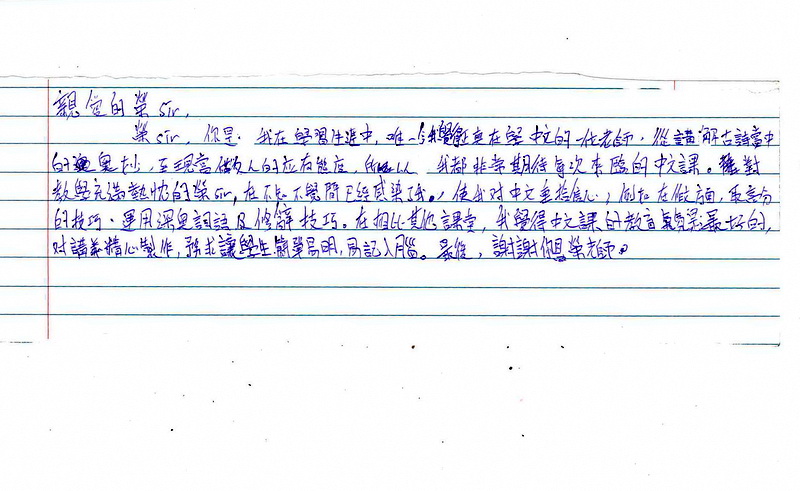 親愛的榮 sir,
榮 sir, 你是, 我在學習生涯中, 唯一令我覺能真在學中文的一位老師, 從講解古詩當中
的奧妙, 至現當做友人的应有態度, 所以 我都非常期待每次來臨的中文課。對
教學充滿熱忱的榮 sir, 在不知不覺間已經感染了我。, 使我对中文重拾信心; 例如在做方面, 取高分
的技巧、運用深奧詞語及修辭技巧。在相比其他課堂, 我覺得中文課的教育氣氛是最好的,
对講義精心製作, 務求讓學生簡單易明, 易記入腦。最後, 謝謝你 榮老師。